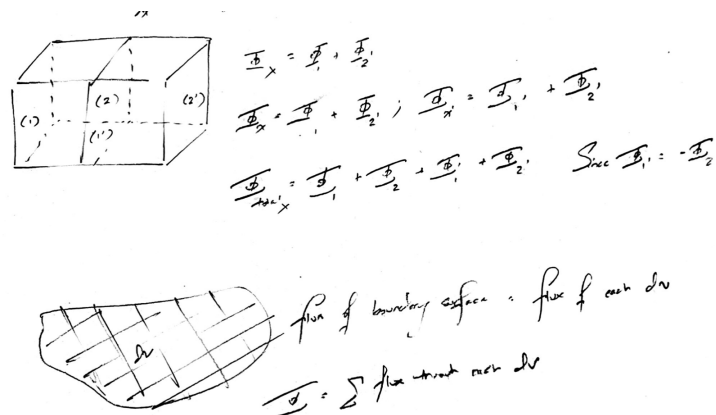 (1)
(2)
(1')
(2')
Φ_x = Φ_1 + Φ_2'
Φ_x = Φ_1 + Φ_2' ; Φ_x' = Φ_1' + Φ_2'
Φ_total_x = Φ_1 + Φ_2 + Φ_1' + Φ_2' Since Φ_1' = -Φ_2
dv
flux of boundary surface = flux of each dv
Φ = Σ flux through each dv